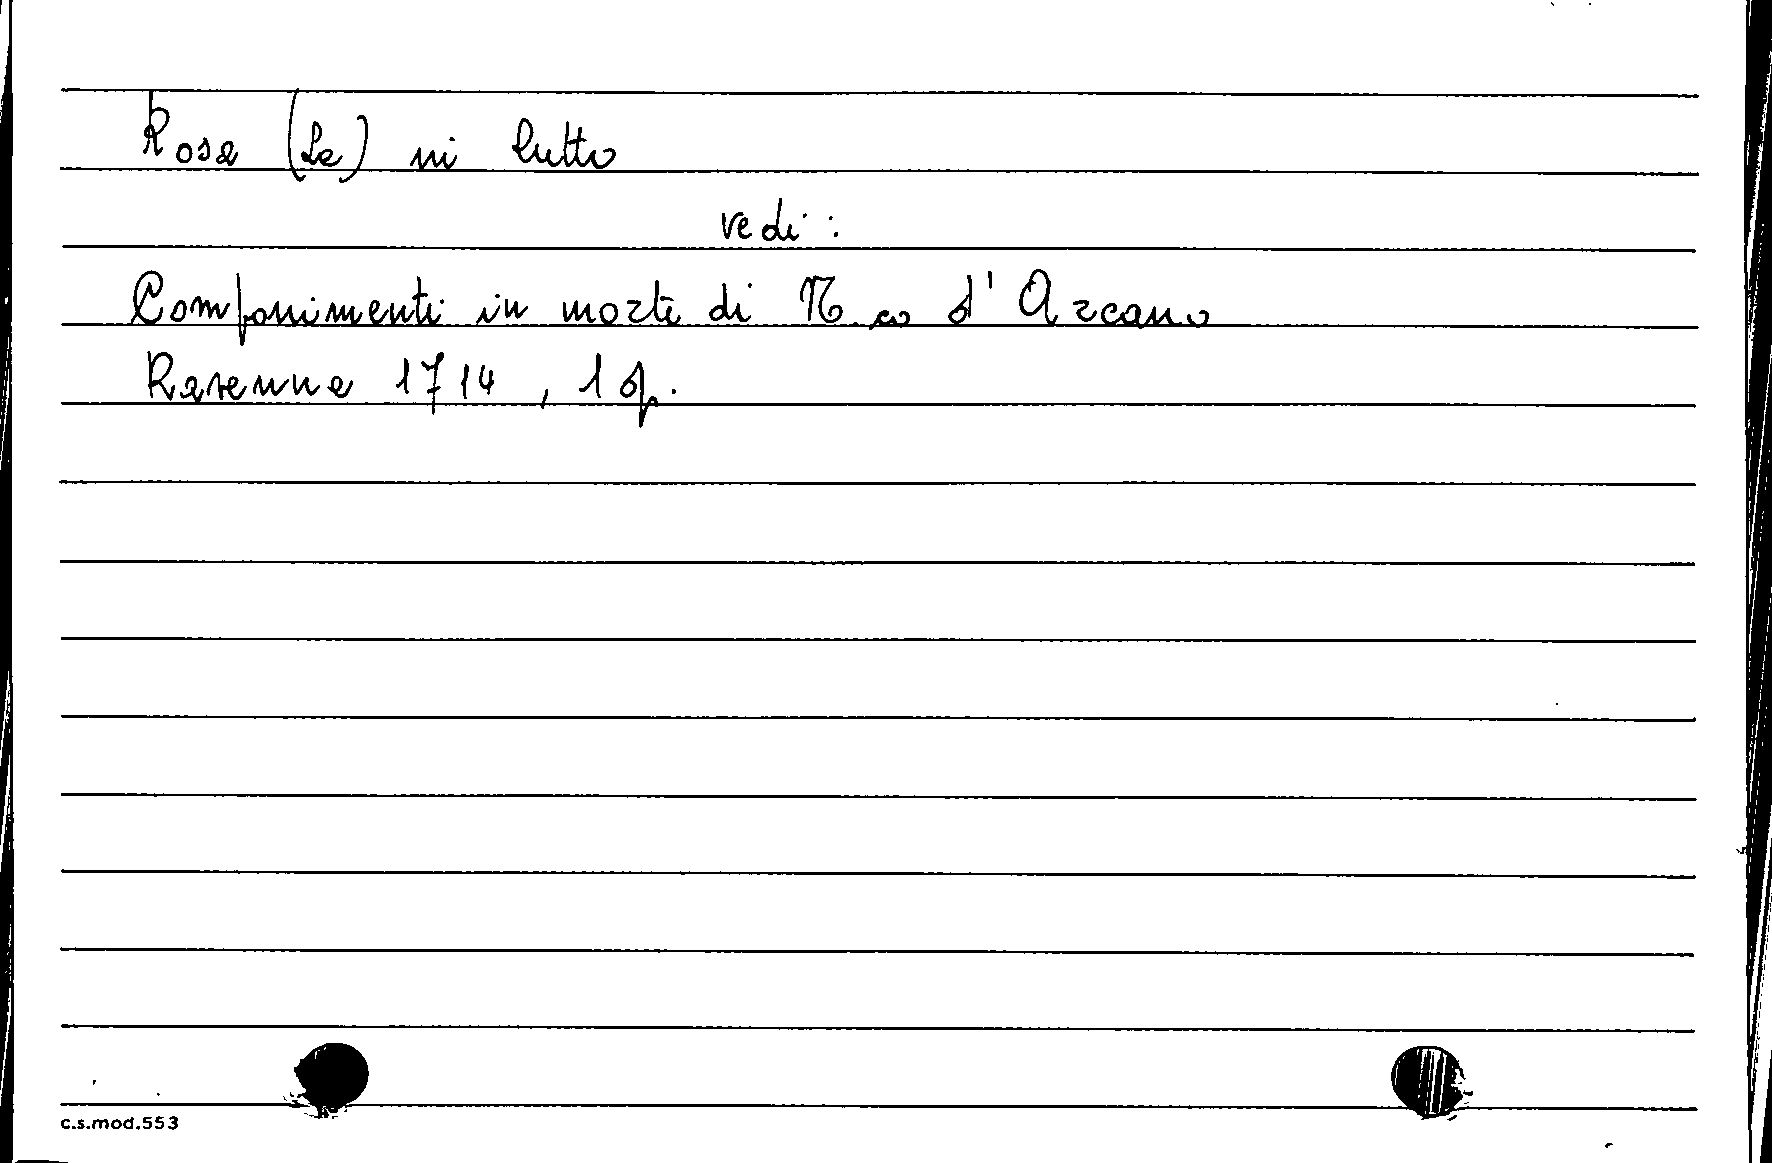 Rosa (La) in lutto
vedi:
Componimenti in morte di M.co d'Arcano
Ravenna 1714, 1 op.
c.s.mod.553